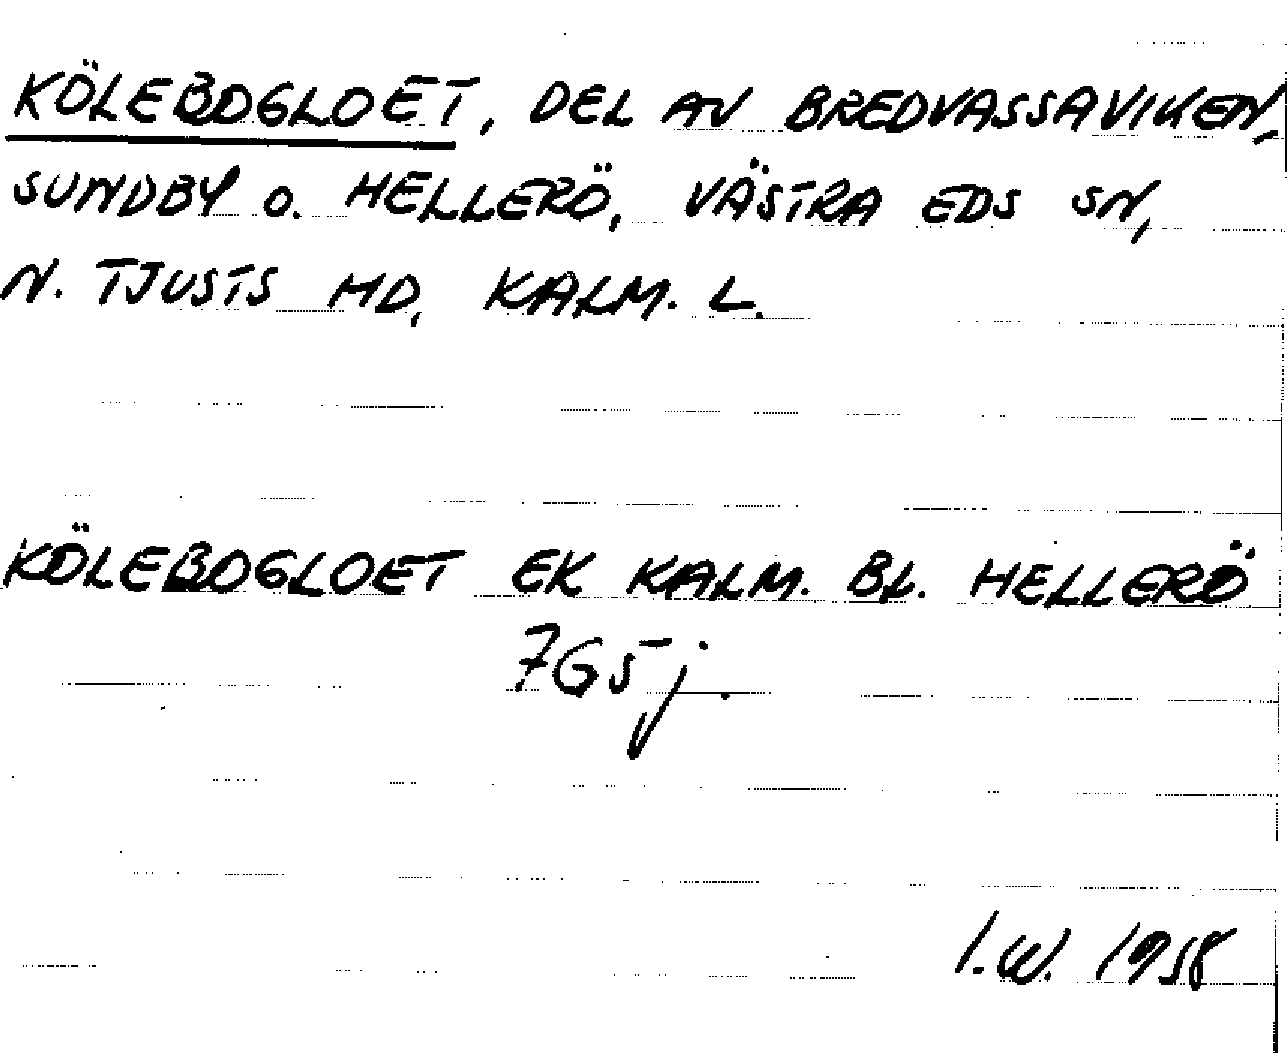 KÖLEBOGLOET, DEL AV BREDVASSAVIKEN,
SUNDBY o. HELLERÖ, VÄSTRA EDS SN,
N. TJUSTS HD, KALM. L.
KÖLEBOGLOET EK KALM. BL. HELLERÖ
7G5j.
I.W. 1958